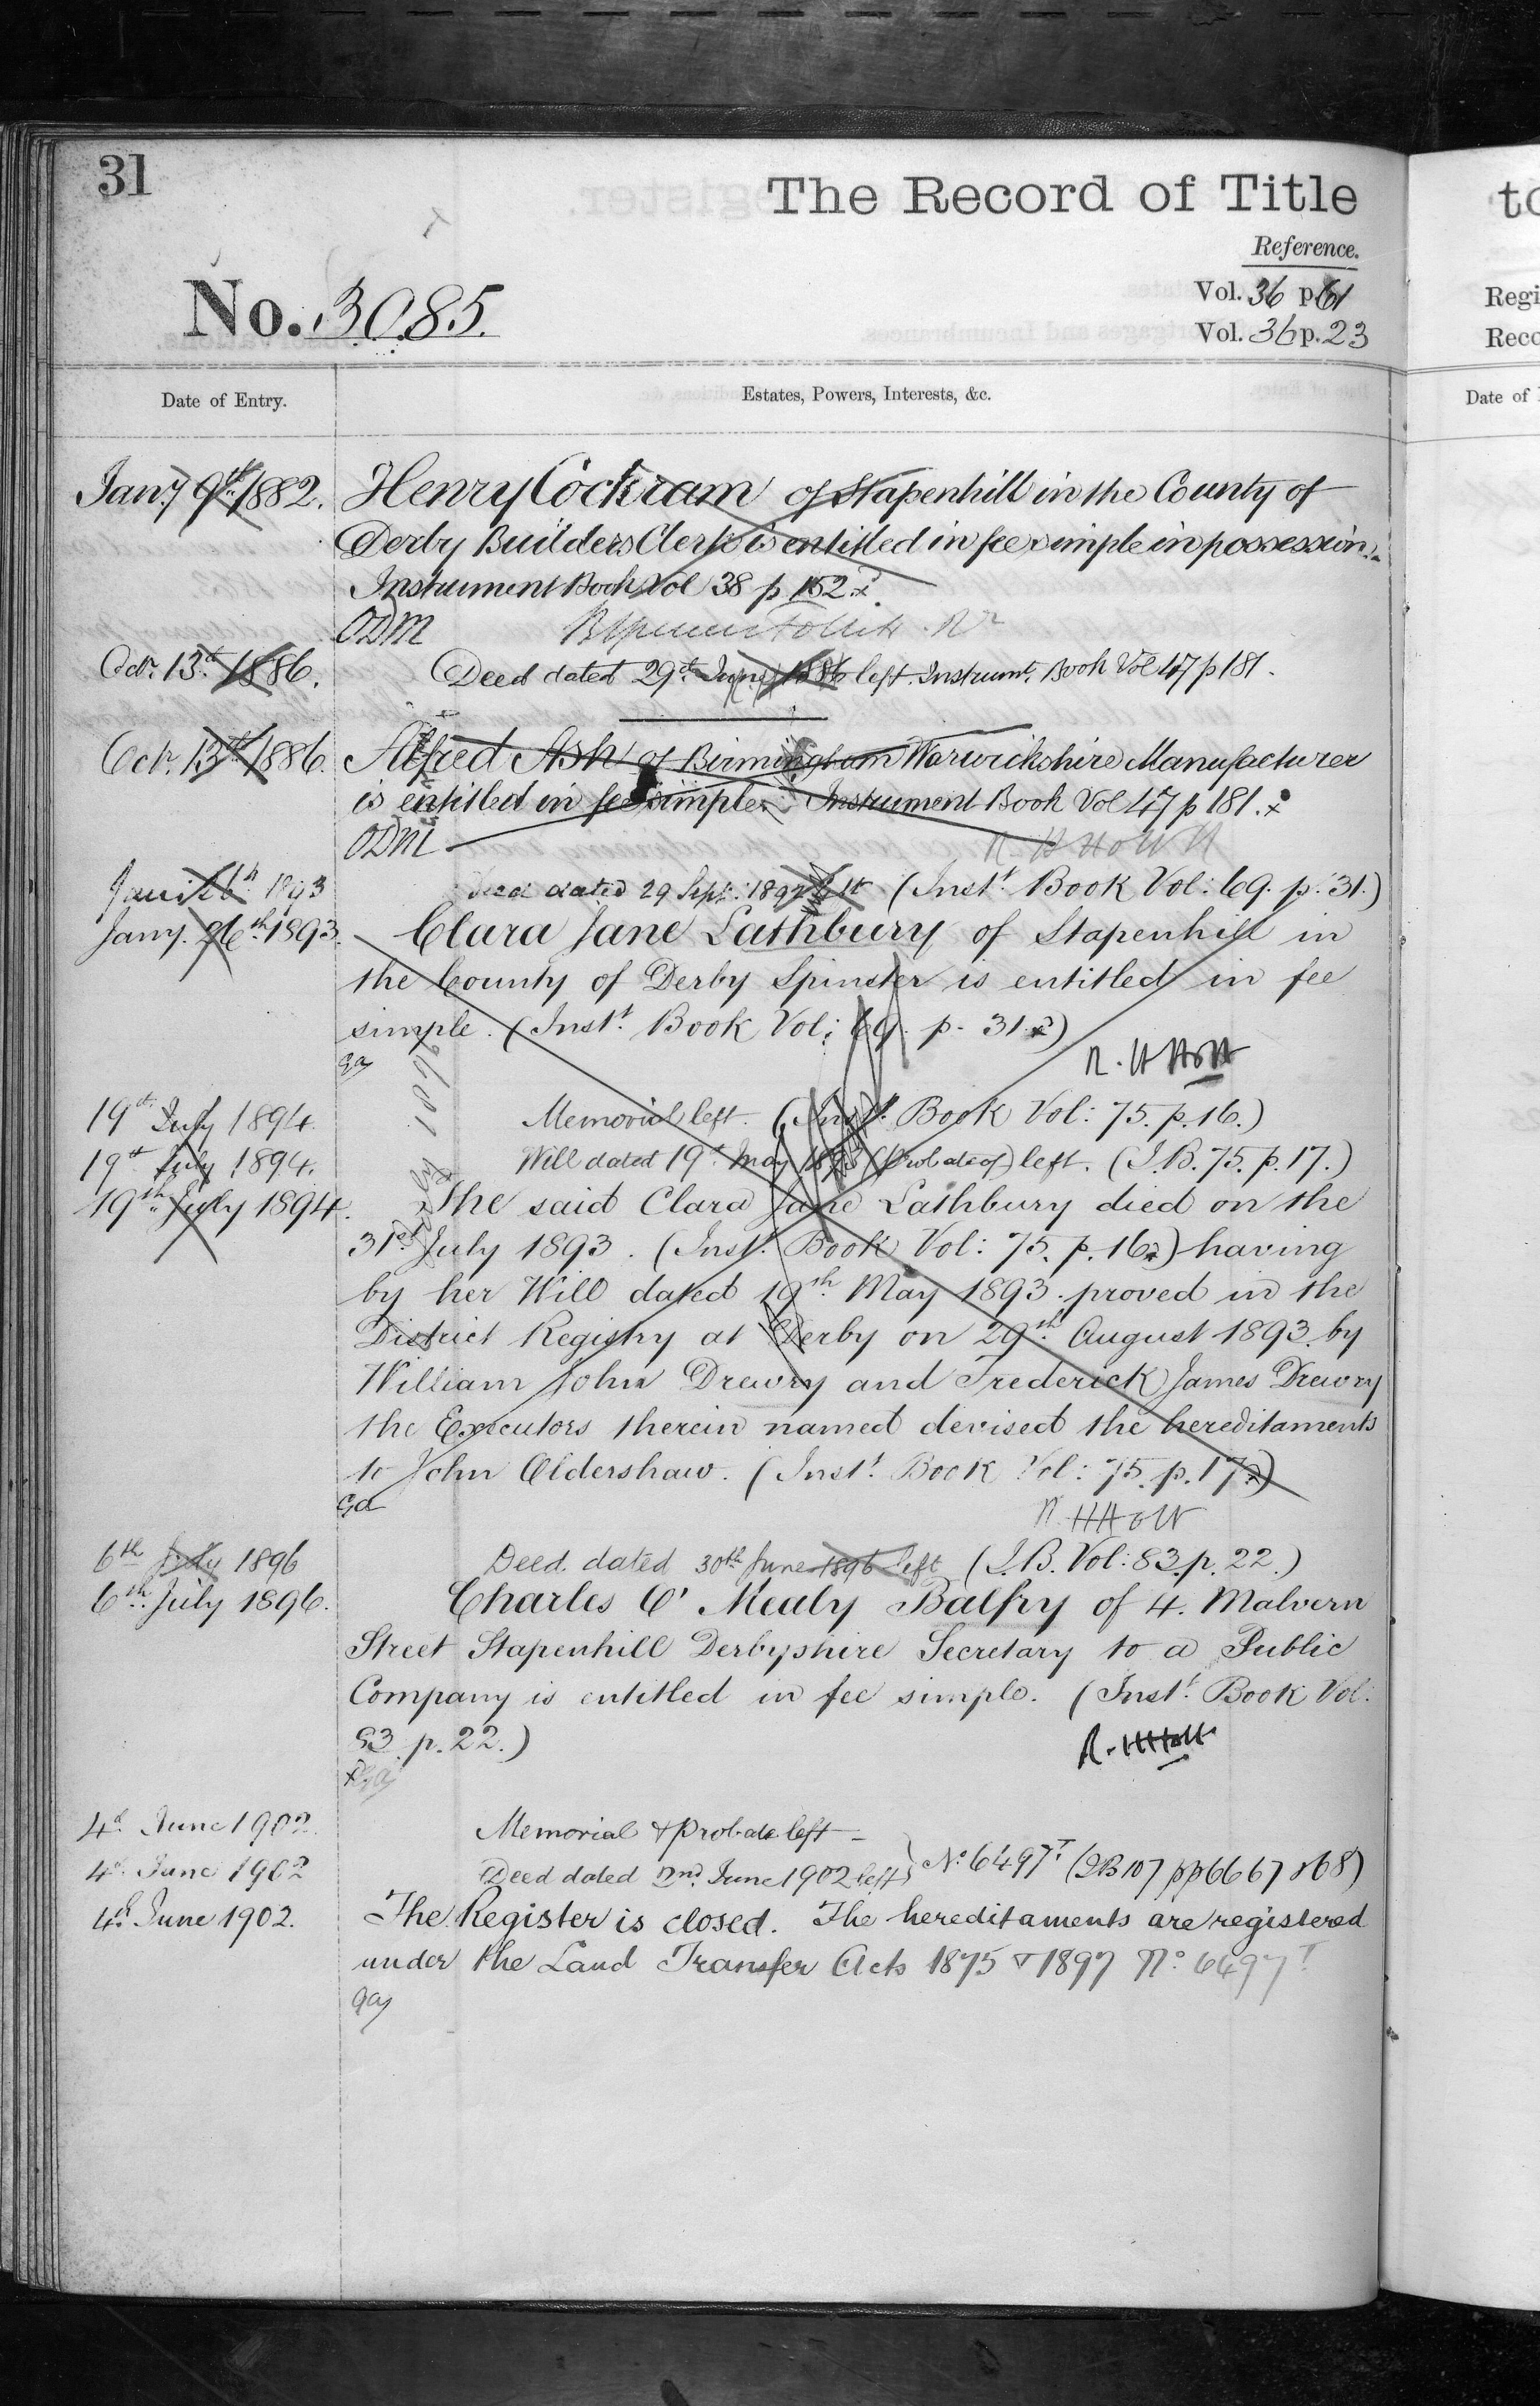 31
The Record of Title
Reference.
No. 3085.
Vol. 36 p 61
Vol. 36 p. 23
Date of Entry.
Estates, Powers, Interests, &c.
Jany 9th 1882. Henry Cockram of Stapenhill in the County of
Derby Builders Clerk is entitled in fee simple in possession.
Instrument Book Vol 38 p 152
ODM
Octr. 13th 1886. Deed dated 29th June 1886 left. Instrumt. Book Vol 47 p 181.
Octr. 13th 1886. Alfred Ash of Birmingham Warwickshire Manufacturer
is entitled in fee simple. Instrument Book Vol 47 p 181.
ODM R. H Holt
1893 Deed dated 29 Sept: 1892 left (Inst: Book Vol: 69. p. 31.)
Jany. 26th 1893. Clara Jane Lathbury of Stapenhill in
the County of Derby Spinster is entitled in fee
simple. (Inst: Book Vol: 69. p. 31.)
R. H Holt
19th July 1894. Memorial left. (Inst: Book Vol: 75. p. 16.)
19th July 1894. Will dated 19th May 1893 (Probate of) left. (I.B. 75. p. 17.)
19th July 1894. The said Clara Jane Lathbury died on the
31st July 1893. (Inst: Book Vol: 75. p. 16) having
by her Will dated 19th May 1893 proved in the
District Registry at Derby on 29th August 1893 by
William John Drewry and Frederick James Drewry
the Executors therein named devised the hereditaments
to John Oldershaw. (Inst: Book Vol: 75. p. 17)
R. H Holt
6th July 1896 Deed dated 30th June 1896 left (I.B. Vol: 83. p. 22.)
6th July 1896. Charles O' Mealy Balfry of 4. Malvern
Street Stapenhill Derbyshire Secretary to a Public
Company is entitled in fee simple. (Inst: Book Vol:
83. p. 22.) R. H Holt
4th June 1902. Memorial & Probate left
4th June 1902 Deed dated 2nd June 1902 left } No. 6497T (IB 107 pp 66 67 & 68)
4th June 1902. The Register is closed. The hereditaments are registered
under the Land Transfer Acts 1875 & 1897 No: 6497T
to
Regi
Reco
Date of